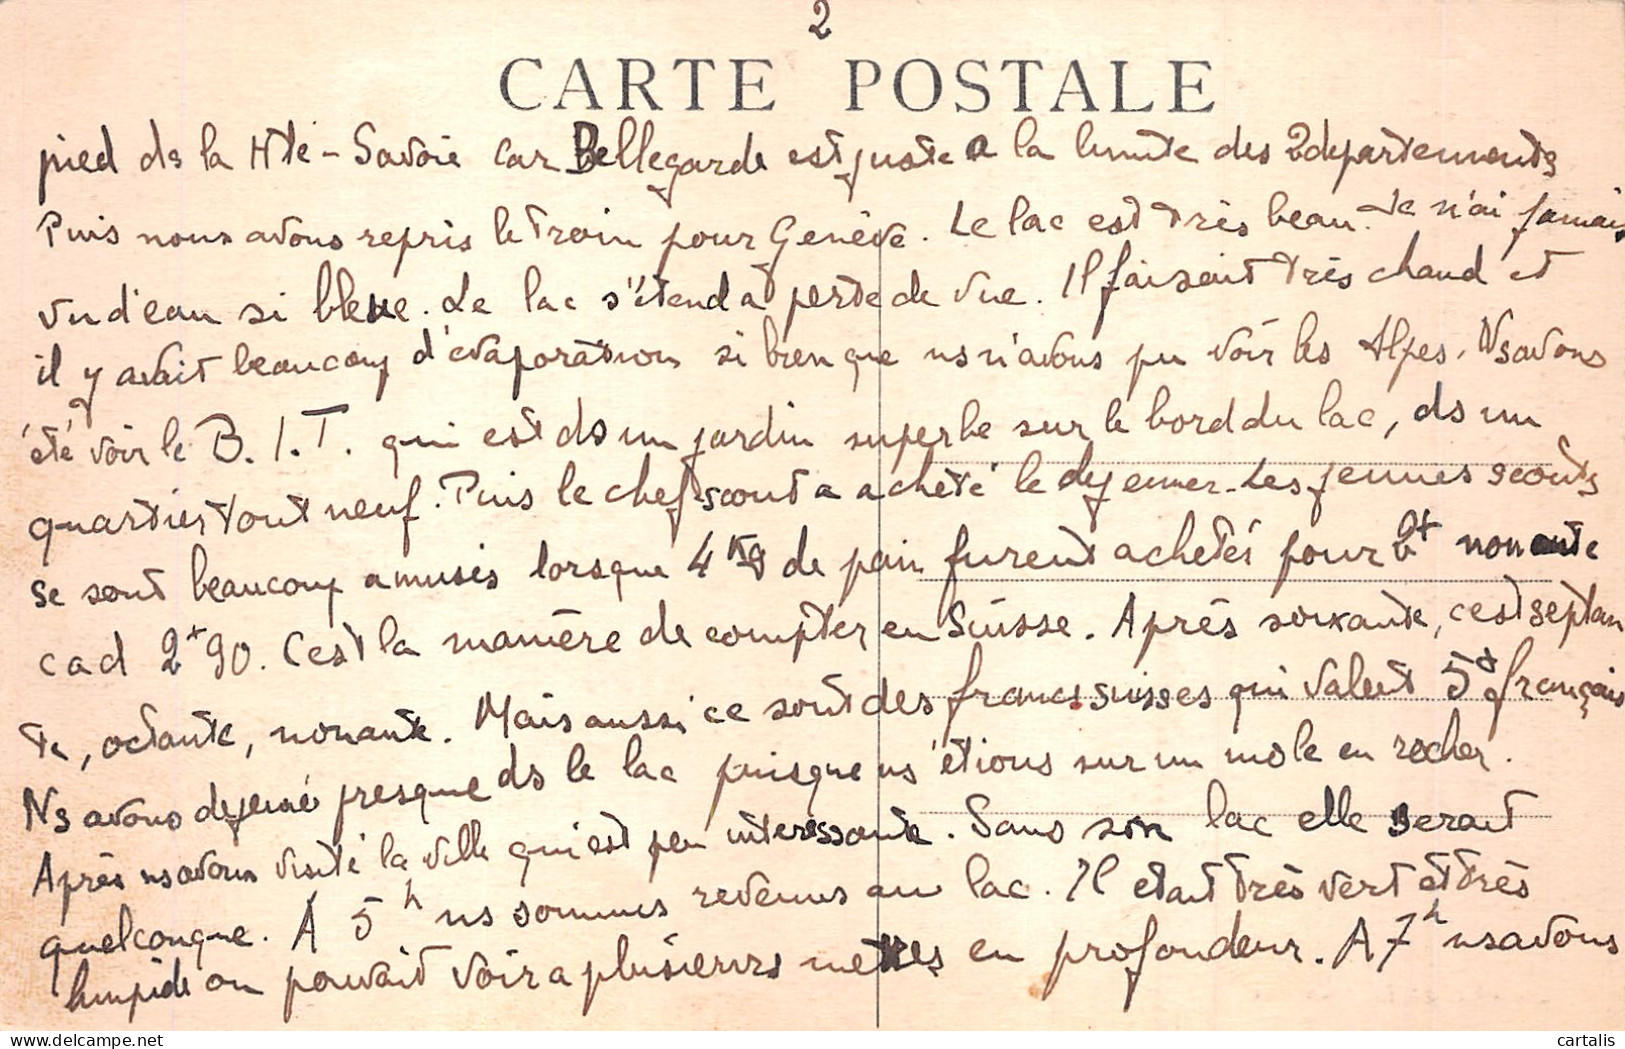 2
CARTE POSTALE
pied ds la Hte-Savoie car Bellegarde est juste a la limite des 2 departements
Puis nous avons repris le train pour Genève. Le lac est très beau. Je n'ai jamais
vu d'eau si bleue. Le lac s'étend à perte de vue. Il faisait très chaud et
il y avait beaucoup d'évaporation si bien que ns n'avons pu voir les Alpes. Ns avons
été voir le B.I.T. qui est ds un jardin superbe sur le bord du lac, ds un
quartier tout neuf. Puis le chef scout a acheté le dejeuner. Les jeunes scouts
se sont beaucoup amusés lorsque 4 Kg de pain furent achetés pour 2f nonante
cad 2f90. C'est la manière de compter en Suisse. Après soixante, c'est septan
te, octante, nonante. Mais aussi ce sont des francs suisses qui valent 5f français
Ns avons dejeuné presque ds le lac puisque ns étions sur un mole en rocher.
Après ns avons visité la ville qui est peu interessante. Sans son lac elle serait
quelconque. A 5h ns sommes revenus au lac. Il etait très vert et très
limpide on pouvait voir a plusieurs mètres en profondeur. A 7h ns avons
cartalis
delcampe.net